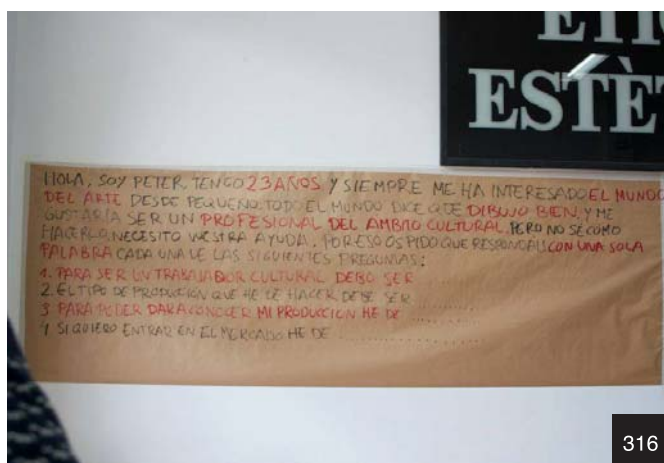 ESTÈ
HOLA, SOY PETER, TENGO 23 AÑOS, Y SIEMPRE ME HA INTERESADO EL MUNDO
DEL ARTE DESDE PEQUEÑO. TODO EL MUNDO DICE QUE DIBUJO BIEN, Y ME
GUSTARÍA SER UN PROFESIONAL DEL AMBITO CULTURAL. PERO NO SÉ COMO
HACERLO. NECESITO VUESTRA AYUDA. POR ESO OS PIDO QUE RESPONDAIS CON UNA SOLA
PALABRA CADA UNA DE LAS SIGUIENTES PREGUNTAS:
1. PARA SER UN TRABAJADOR CULTURAL DEBO SER ...........
2. EL TIPO DE PRODUCCION QUE HE DE HACER DEBE SER ...........
3 PARA PODER DAR A CONOCER MI PRODUCCION HE DE ...........
4 SI QUIERO ENTRAR EN EL MERCADO HE DE ...........
316